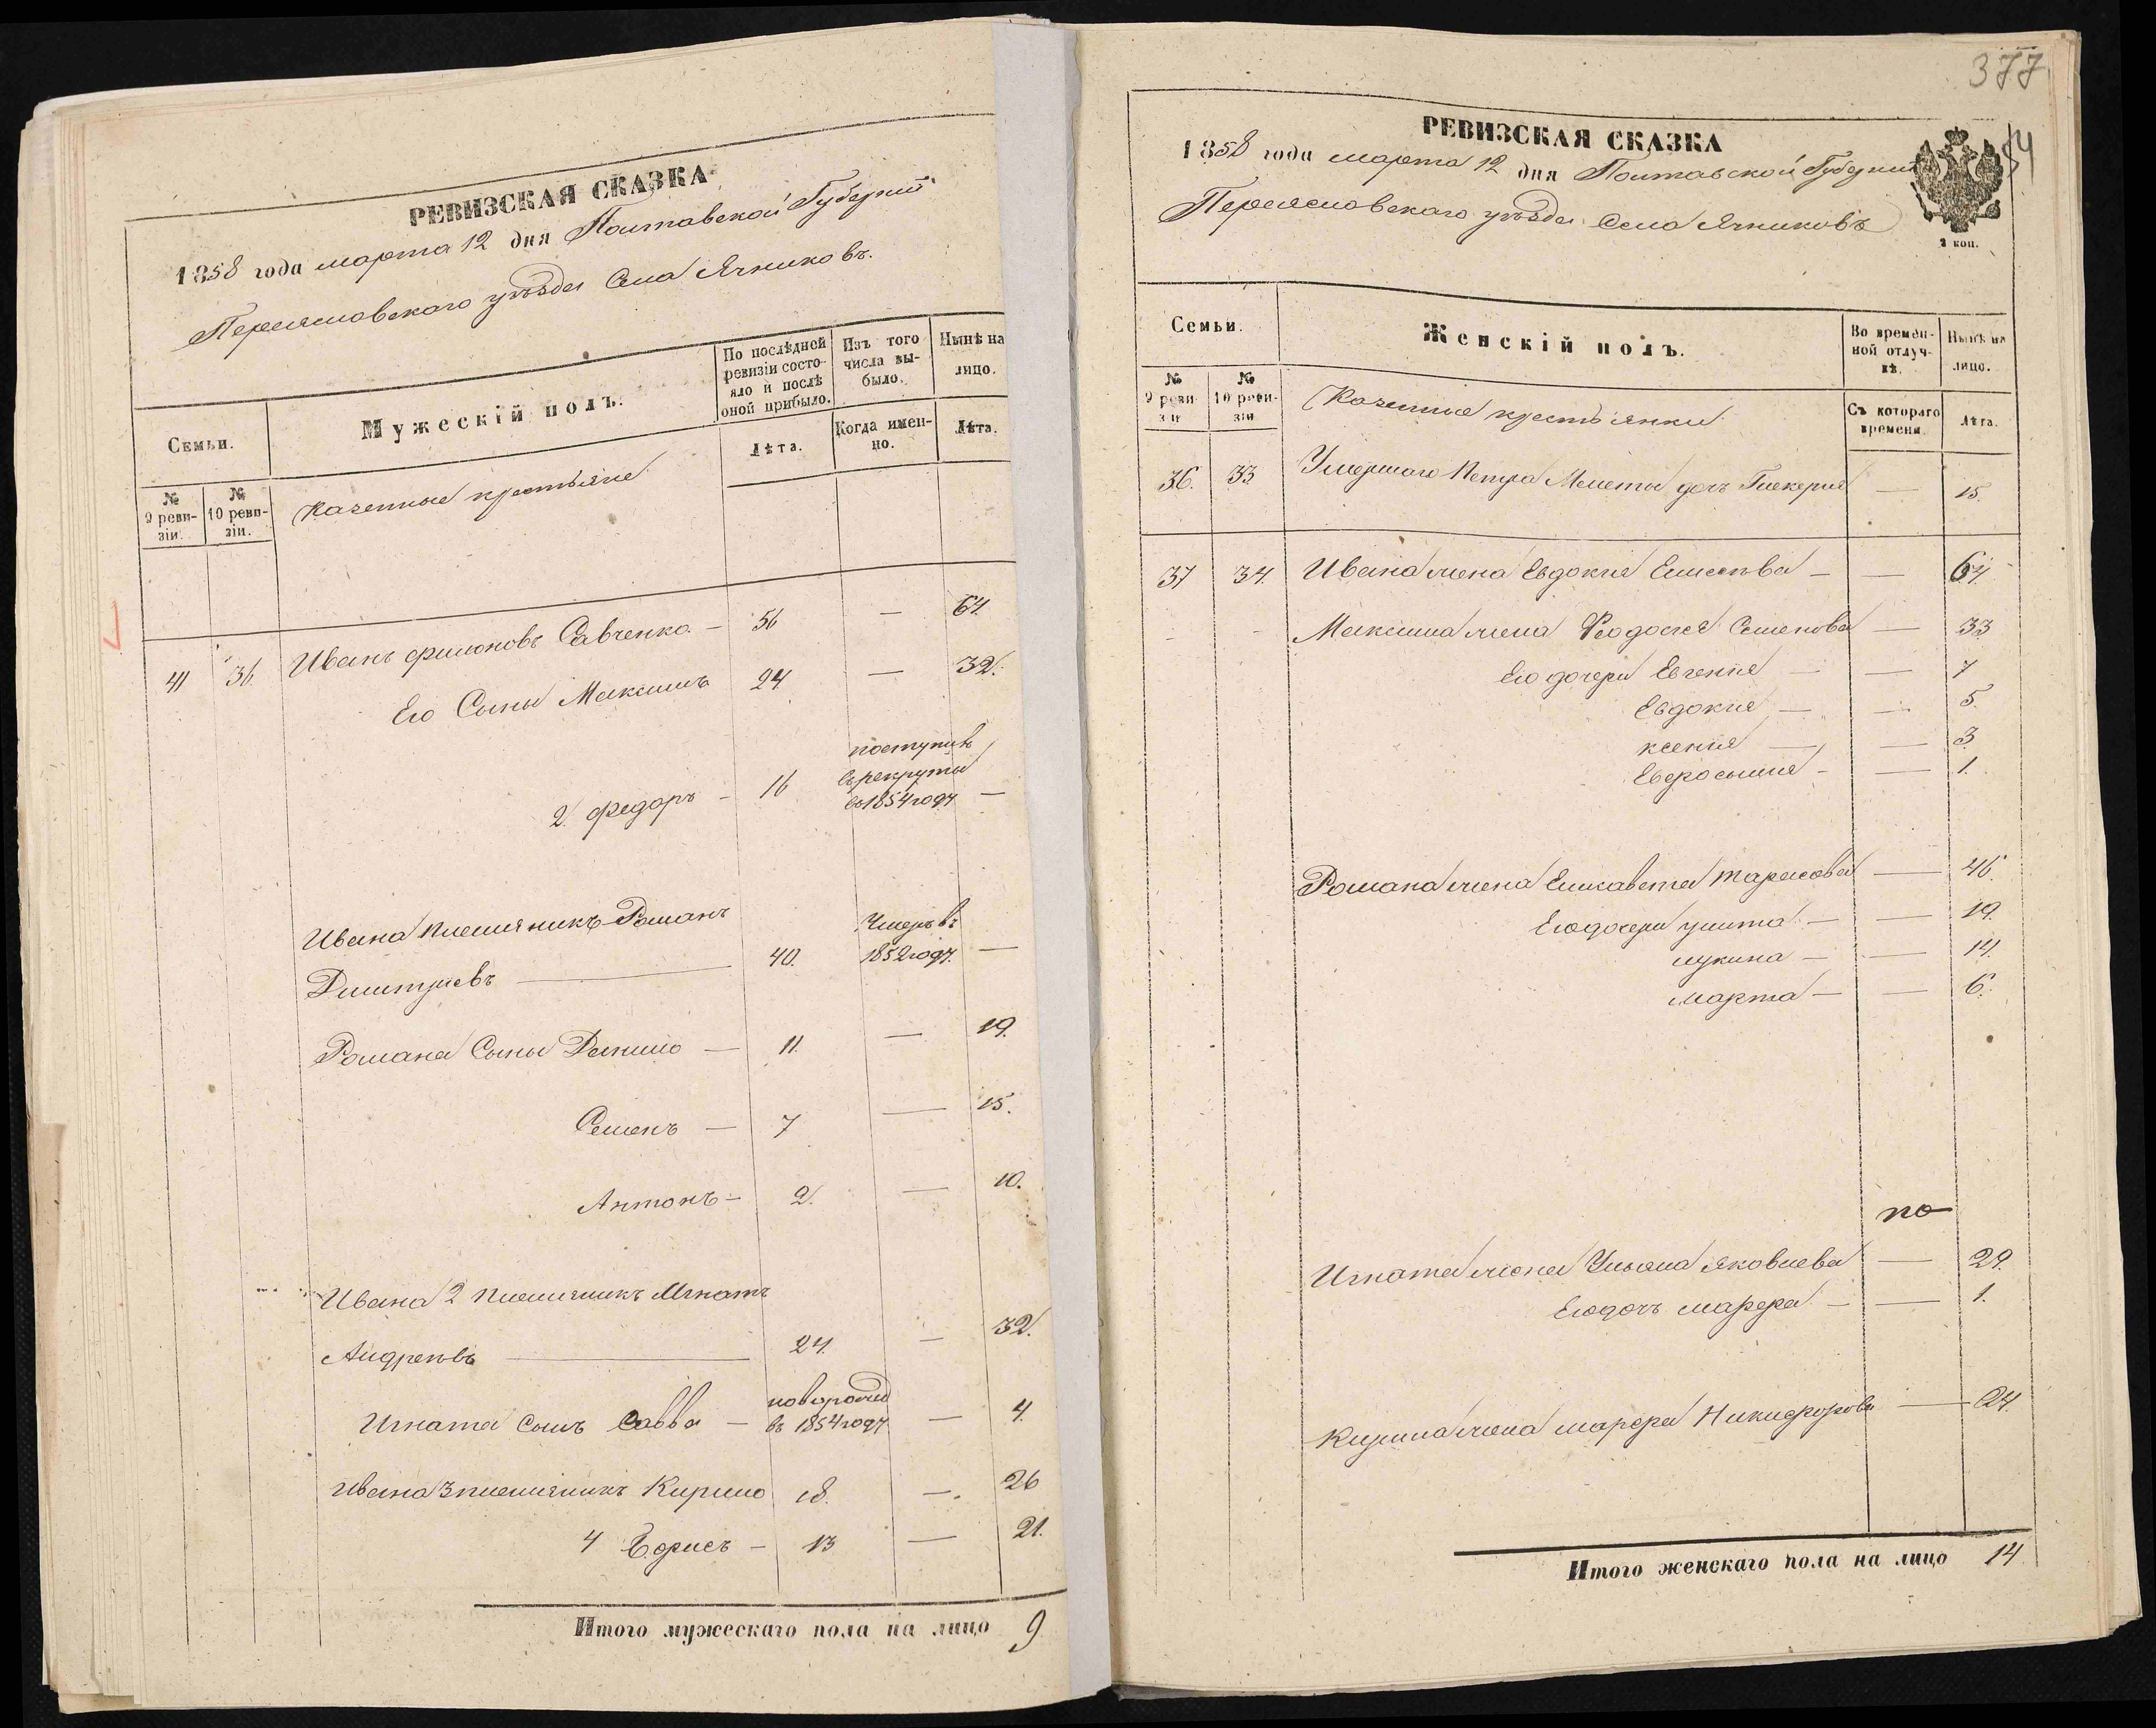 РЕВИЗСКАЯ СКАЗКА
1858 года марта 12 дня Полтавской Губерніи
Переяславскаго уѣзда Села Ячниковъ.
Семьи.
Мужескій полъ.
По послѣдней ревизіи состояло и послѣ оной прибыло.
Изъ того числа выбыло.
Нынѣ на лицо.
№ 9 ревизіи.
№ 10 ревизіи.
Казенные крестьяне
Лѣта.
Когда именно.
Лѣта.
41 36 Иванъ Филоновъ Савченко - 56 — 64.
Его Сыны Максимъ 24 — 32.
поступилъ
2. Федоръ - 16 въ рекруты
въ 1854 году —
Ивана племяникъ Романъ Умеръ въ
Дмитріевъ — 40. 1852 году. —
Романа Сыны Данило — 11. — 19.
Семенъ — 7 — 15.
Антонъ - 2. — 10.
Ивана 2 племяникъ Игнатъ
Андреевъ — 24. — 32.
новорожд
Игната сынъ Савва — въ 1854 году — 4.
Ивана 3 племяникъ Кирило 18. —. 26
4 Борисъ - 13 — 21.
Итого мужескаго пола на лицо 9
377
54
РЕВИЗСКАЯ СКАЗКА
1858 года марта 12 дня Полтавской Губерніи
Переяславскаго уѣзда Села Ячниковъ
2 коп.
Семьи.
Женскій полъ.
Во временной отлучкѣ.
Нынѣ на лицо.
№ 9 ревизіи
№ 10 ревизіи
Казенные крестьянки
Съ котораго времени.
Лѣта.
36. 33 Умершаго Петра дочь Гликерія — 15.
37 34. Ивана жена Евдокія Елисеева — — 64.
Максима жена Феодосія Семенова — 33
Его дочери Евгенія — — 7
Евдокія — — 5.
Ксенія — — 3.
Евфросинія - — 1.
Романа жена Елисавета Тарасова — 46.
Его дочери Улита — — 19.
Лукина — — 14.
Марта — — 6.
по
Игната жена Ульяна Яковлева — 29.
Его дочь Марфа — — 1.
Кирила жена Марфа Никифорова — 24.
Итого женскаго пола на лицо 14